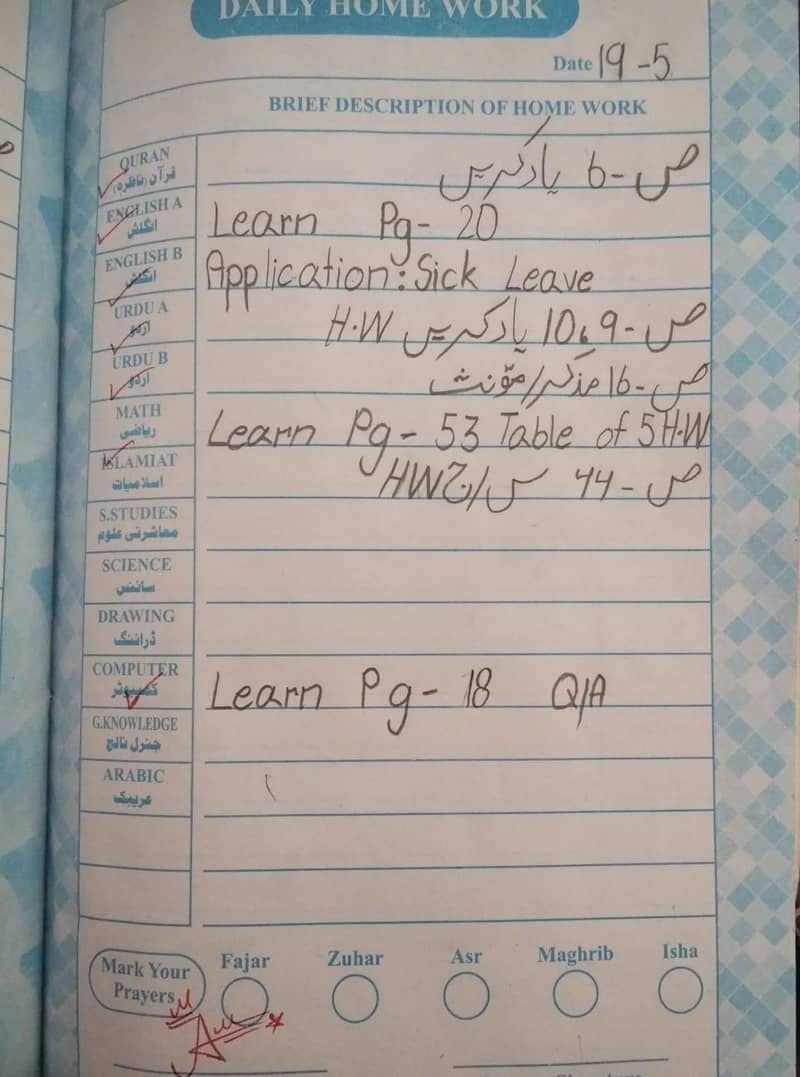 DAILY HOME WORK
Date 19-5
BRIEF DESCRIPTION OF HOME WORK
QURAN
قرآن (ناظرہ)
ص-6 یاد کریں
ENGLISH A
انگلش
Learn Pg- 20
ENGLISH B
انگلش
Application: Sick Leave
URDU A
اردو
ص-9،10 یاد کریں H.W
URDU B
اردو
ص-16 مذکر/مؤنث
MATH
ریاضی
Learn Pg- 53 Table of 5 H.W
ISLAMIAT
اسلامیات
ص-44 س/ج HW
S.STUDIES
معاشرتی علوم
SCIENCE
سائنس
DRAWING
ڈرائنگ
COMPUTER
کمپیوٹر
Learn Pg- 18 Q/A
G.KNOWLEDGE
جنرل نالج
ARABIC
عریبک
Mark Your Prayers
Fajar Zuhar Asr Maghrib Isha